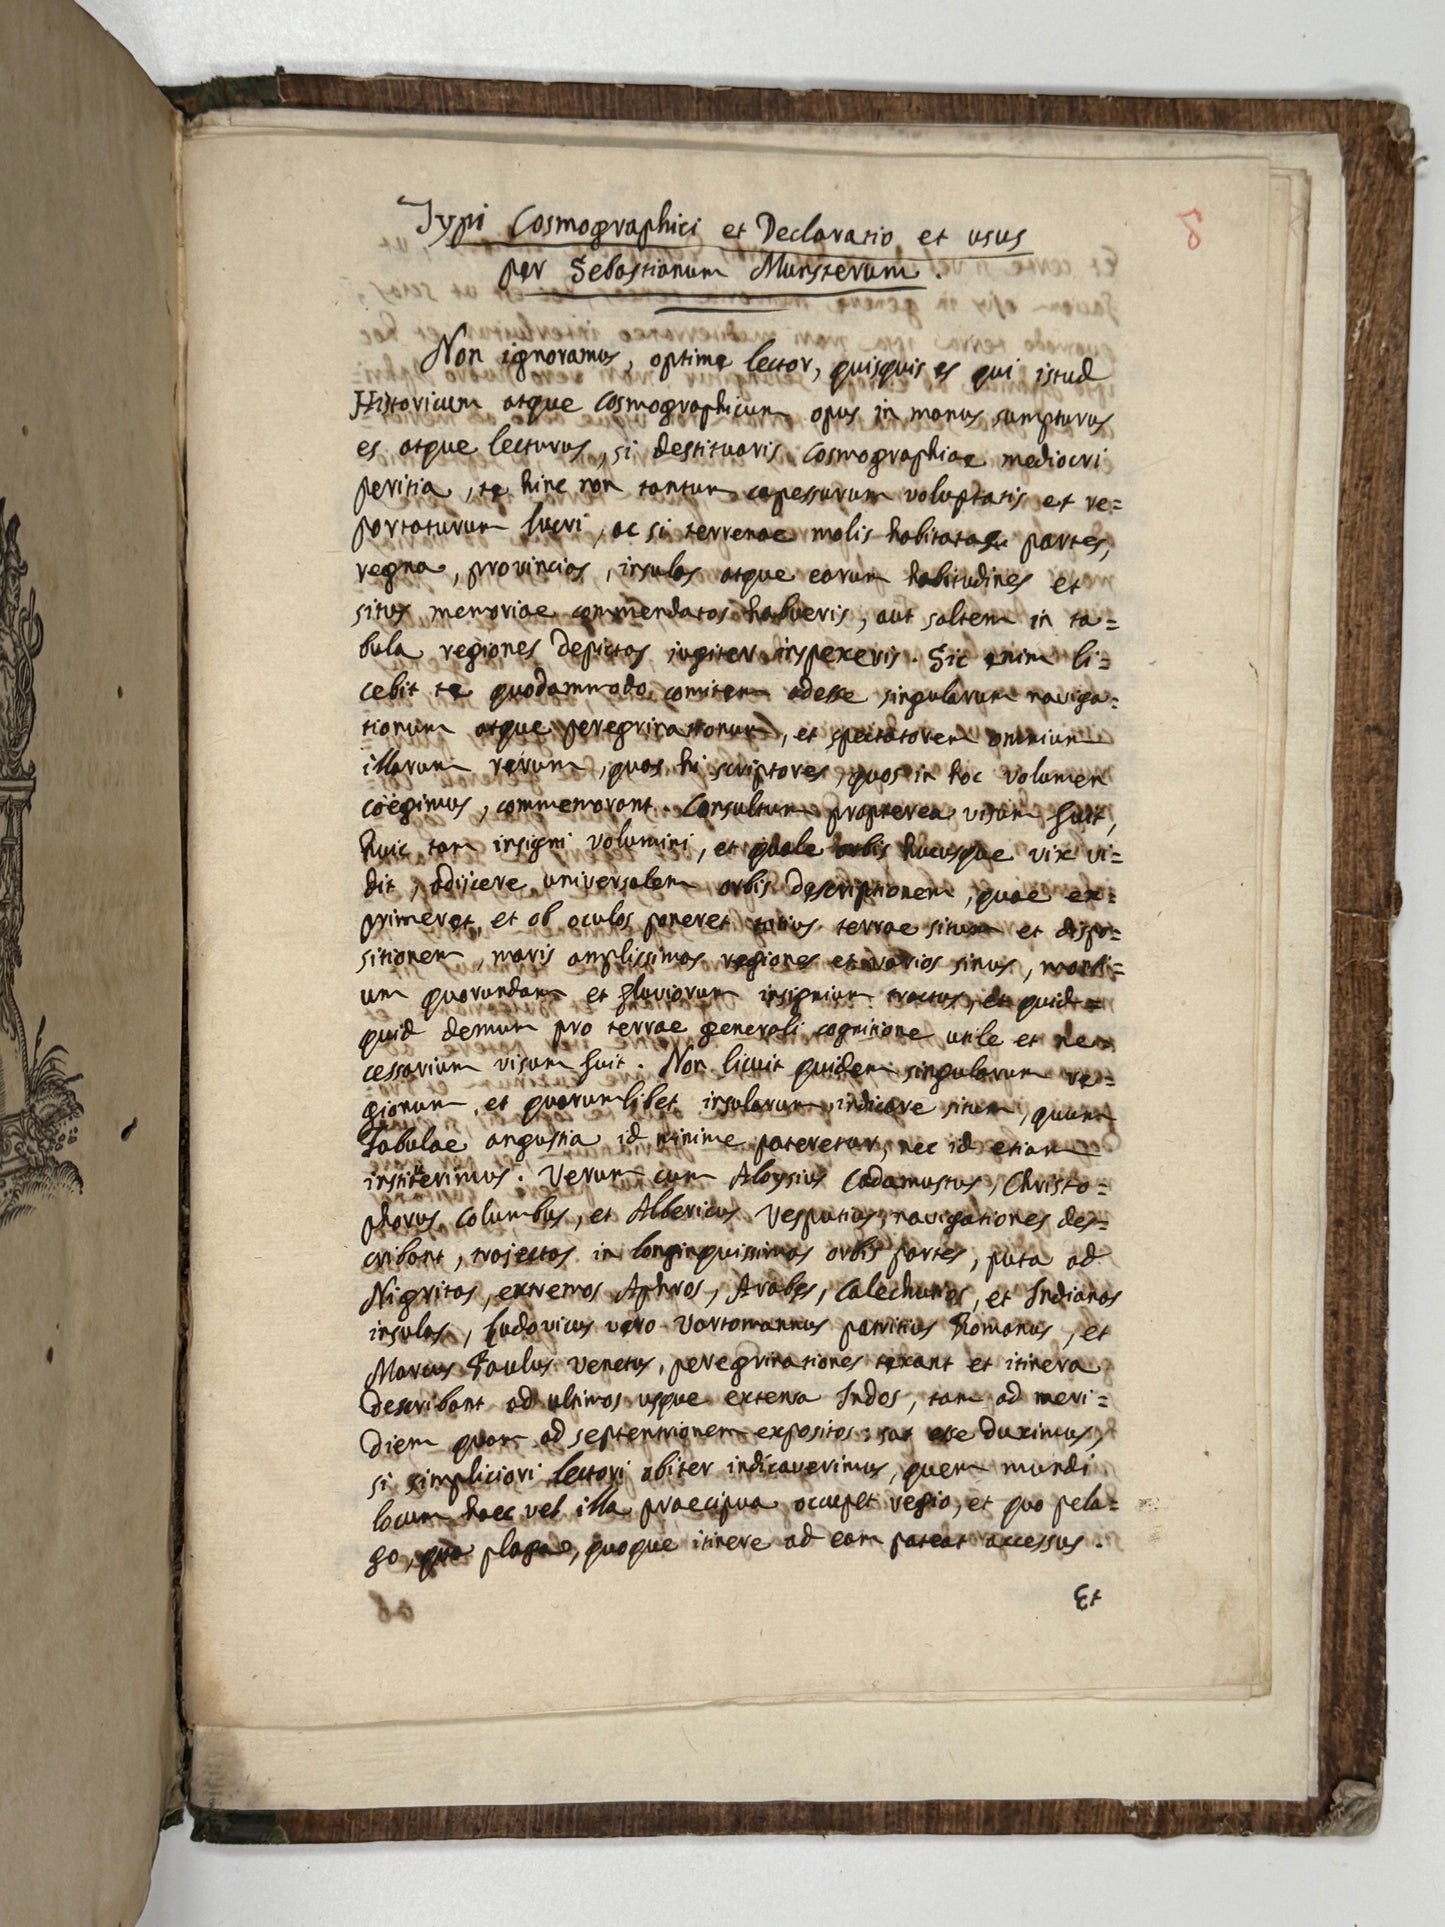 8
Typi Cosmographici et Declaratio et usus
per Sebastianum Munsterum.
Non ignoramus, optime lector, quisquis es qui istud
Historicum atque Cosmographicum opus in manus sumpturus
es atque lecturus, si destituaris Cosmographiae mediocri
peritia, te hinc non tantum capessurum voluptatis et re=
portaturum lucri, ac si terrenae molis habitatae partes,
regna, provincias, insulas atque earum habitudines et
situs memoriae commendatos habueris, aut saltem in ta=
bula regiones depictas jugiter inspexeris. Sic enim li=
cebit te quodammodo comitem adesse singularum naviga=
tionum atque peregrinationum, et spectatorem omnium
illarum rerum, quas hi scriptores, quos in hoc volumen
coëgimus, commemorant. Consultum propterea visum fuit,
huic tam insigni volumini, et quale orbis hucusque vix vi=
dit, adijcere universalem orbis descriptionem, quae ex=
primeret, et ob oculos poneret totius terrae situm et dispo=
sitionem, maris amplissimas regiones et varios sinus, monti=
um quorundam et fluviorum insignium tractus, et quid=
quid demum pro terrae generali cognitione utile et ne=
cessarium visum fuit. Non licuit quidem singularum re=
gionum et quorumlibet insularum indicare situm, quum
Tabulae angustia id minime pateretur, nec id etiam
institerimus. Verum cum Aloysius Cadamustus, Christo=
phorus Columbus, et Albericus Vesputius, navigationes des=
cribant, trajectas in longinquissimas orbis partes, puta ad
Nigritas, extremos Aphros, Arabes, Calechunos, et Indianas
insulas, Ludovicus vero Vartomannus patritius Romanus, et
Marcus Paulus Venetus, peregrinationes texant et itinera
describant ad ultimos usque extensa Indos, tam ad meri=
diem quam ad septentrionem expositos: sat esse duximus,
si simpliciori lectori obiter indicaverimus, quem mundi
locum haec vel illa praecipua occupet regio, et quo pela=
go, qua plaga, quoque itinere ad eam pateat accessus.
Et